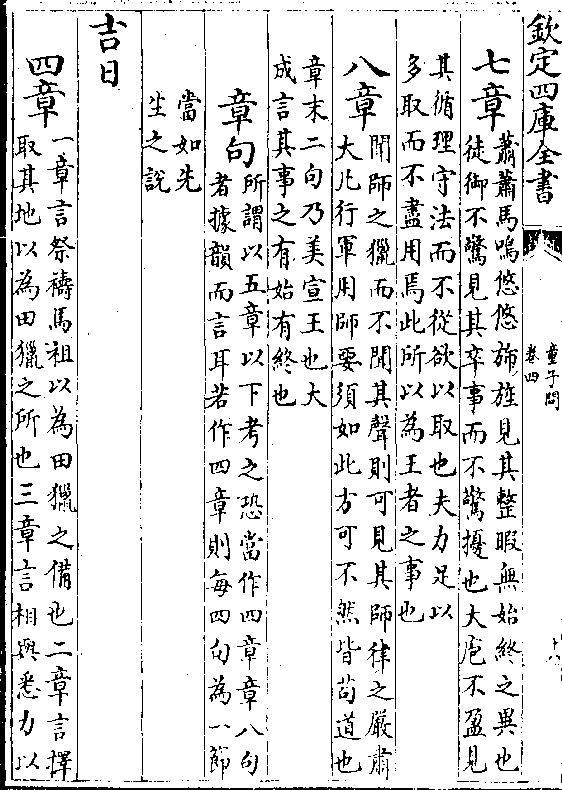 欽定四庫全書
童子問
卷四
十八
七章
蕭蕭馬鳴悠悠斾旌見其整暇無始終之異也
徒御不驚見其卒事而不驚擾也大庖不盈見
其循理守法而不從欲以取也夫力足以
多取而不盡用焉此所以為王者之事也
八章
聞師之獵而不聞其聲則可見其師律之嚴肅
大凡行軍用師要須如此方可不然皆苟道也
章末二句乃美宣王也大
成言其事之有始有終也
章句
所謂以五章以下考之恐當作四章章八句
者據韻而言耳若作四章則每四句為一節
當如先
生之說
吉日
四章
一章言祭禱馬祖以為田獵之備也二章言擇
取其地以為田獵之所也三章言相與悉力以